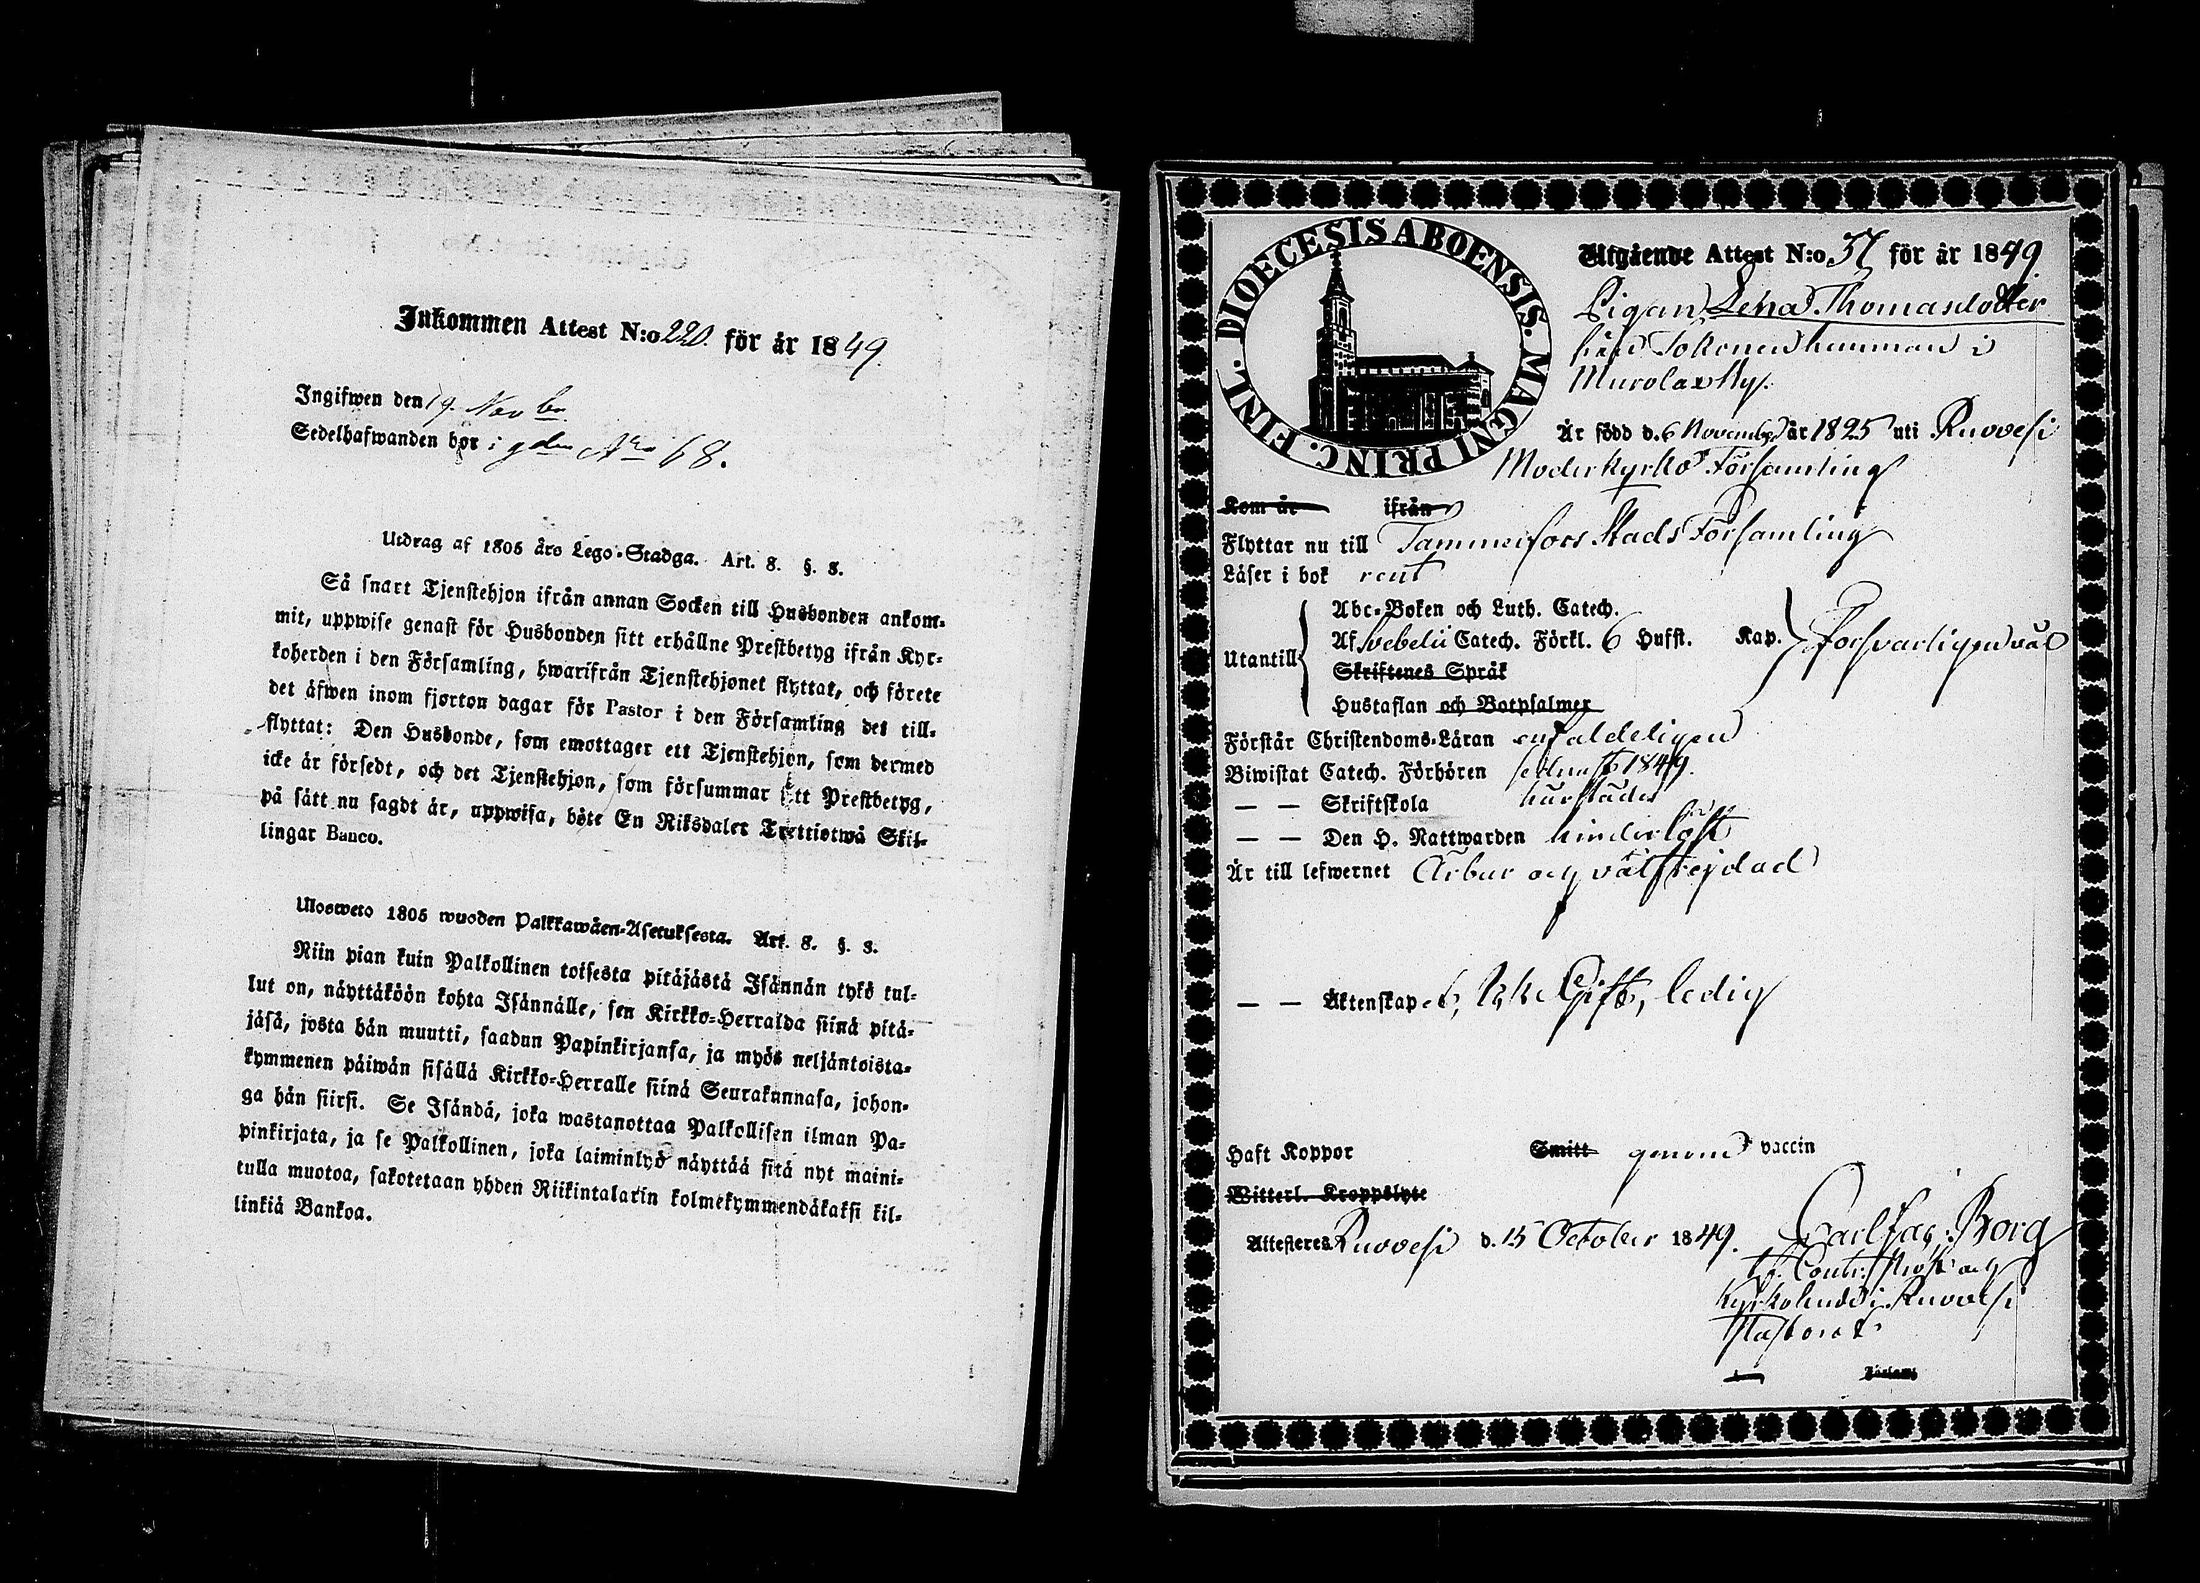 Inkommen Attest N:o 220. för år 1849.
Ingifwen den 19. Novber
Sedelhafwanden bor i gden Nro 68.
Utdrag af 1805 års Lego-Stadga. Art. 8. §. 3.
Så snart Tjenstehjon ifrån annan Socken till Husbonden ankom-
mit, uppwise genast för Husbonden sitt erhållne Prestbetyg ifrån Kyr-
koherden i den Församling, hwarifrån Tjenstehjonet flyttat, och förete
det äfwen inom fjorton dagar för Pastor i den Församling det till-
flyttat: Den Husbonde, som emottager ett Tjenstehjon, som dermed
icke är försedt, och det Tjenstehjon, som försummar sitt Prestbetyg,
på sätt nu sagdt är, uppwisa, böte En Riksdaler Trettiotwå Skil-
lingar Banco.
Ulosweto 1805 wuoden Palkkawäen-Asetuksesta. Art. 8. §. 3.
Niin pian kuin Palkollinen toisesta pitäjästä Isännän tykö tul-
lut on, näyttäköön kohta Isännälle, sen Kirkko-Herralda siinä pitä-
jäsä, josta hän muutti, saadun Papinkirjansa, ja myös neljäntoista-
kymmenen päiwän sisällä Kirkko-Herralle siinä Seurakunnasa, johon-
ga hän siirsi. Se Isändä, joka wastanottaa Palkollisen ilman Pa-
pinkirjata, ja se Palkollinen, joka laiminlyö näyttää sitä nyt maini-
tulla muotoa, sakotetaan yhden Riikintalarin kolmekymmendäkaksi kil-
linkiä Bankoa.
DIOECESIS ABOENSIS. MAGNI PRINC. FINL.
Utgående Attest N:o 37 för år 1849.
Pigan Lena Thomasdotter
från Tokonen hemman i
Murolax By.
Är född d. 6 November år 1825 uti Ruovesi
Moderkyrko Församling
Kom år ifrån
Flyttar nu till Tammerfors Stads Församling
Läser i bok rent
Abc-Boken och Luth. Catech.
Utantill Af Svebelii Catech. Förkl. 6 Hufst. Kap. Försvarligen väl
Skriftenes Språk
Hustaflan och Botpsalmer
Förstår Christendoms-Läran enfaldeligen
Biwistat Catech. Förhören sednast 1849.
— — Skriftskola
— — Den H. Nattwarden
Är till lefwernet Ärbar och välfrejdad
— — Äktenskapet, Icke Gift, ledig
Haft Koppor Smitt genom vaccin
Witterl. Kroppslyte
Attesteres Ruovesi d. 15 October 1849. Carl Borg
tf. Contr. Prost och
Kyrkoherde i Ruovesi
Pastorat.
Församl.